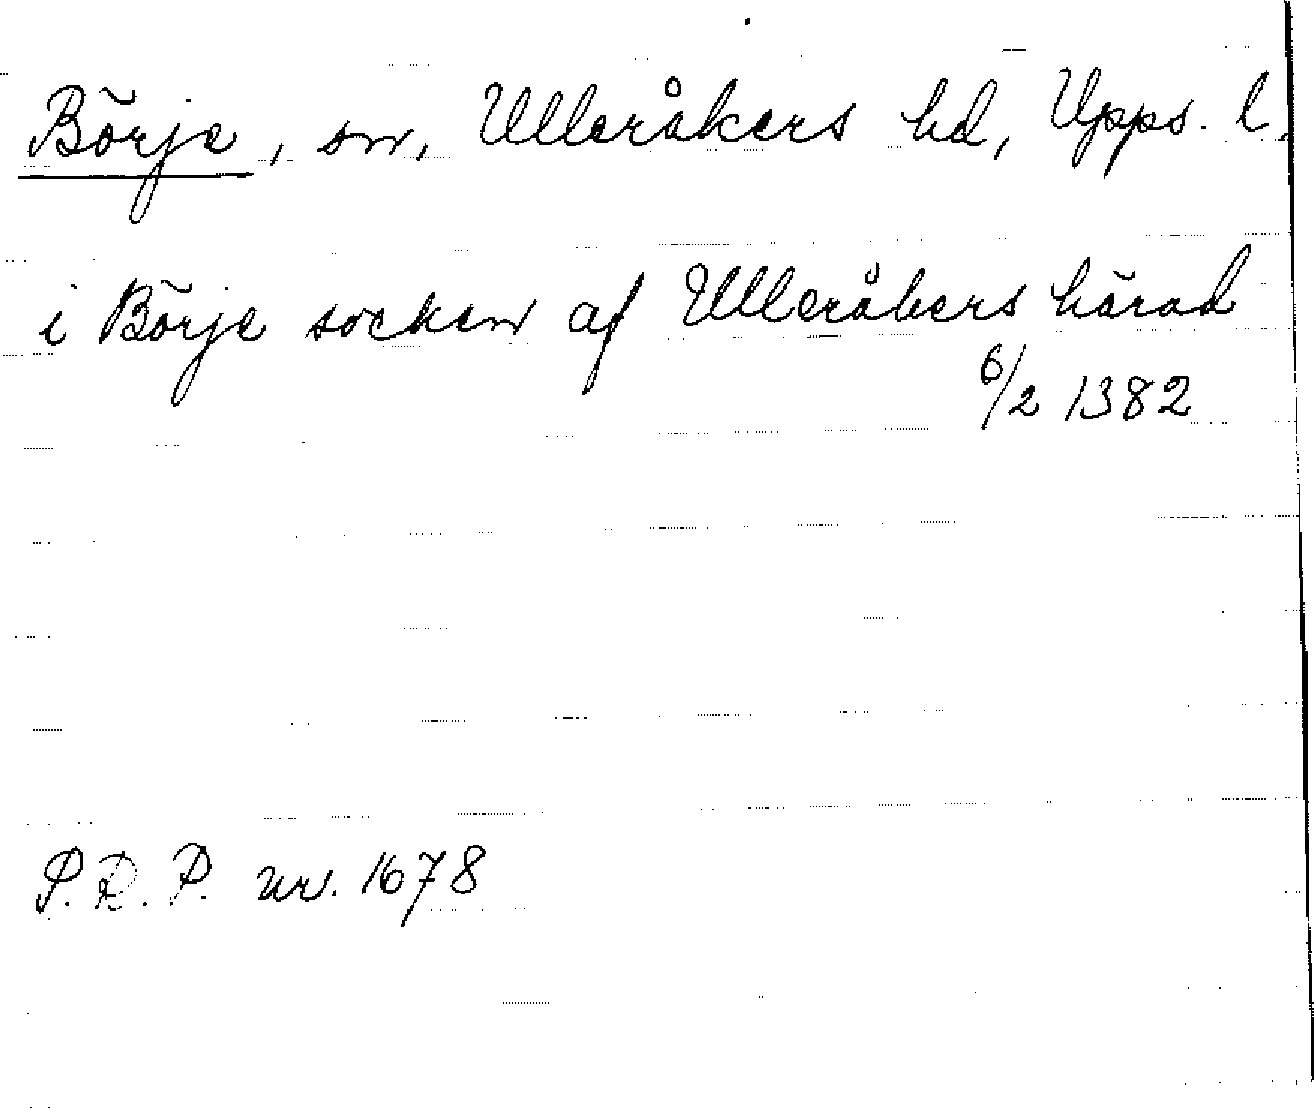 Börje, sn, Ulleråkers hd, Upps. l.
i Börje socken af Ulleråkers härad
6/2 1382
P.R.P. nr. 1678